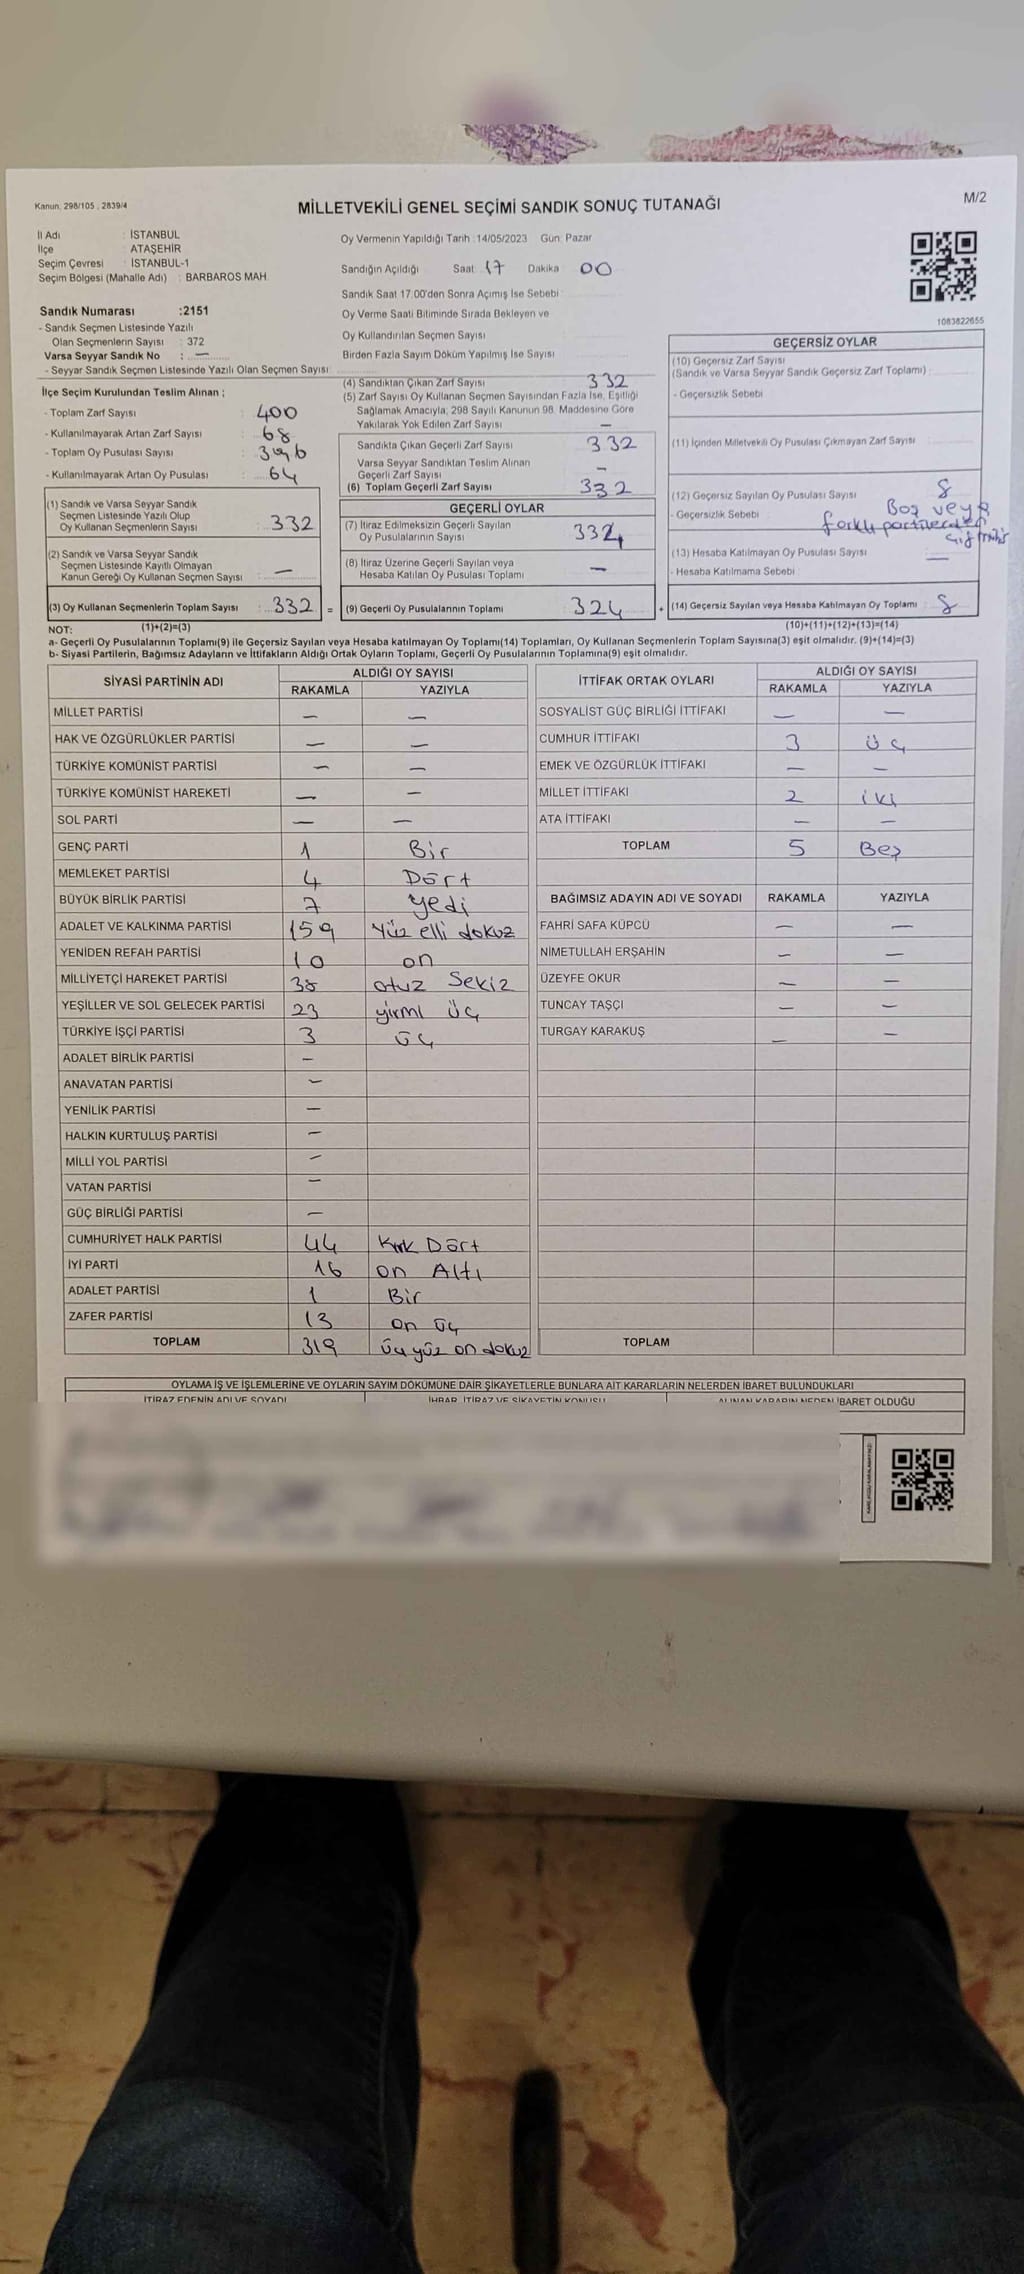 Kanun: 298/105 , 2839/4
MİLLETVEKİLİ GENEL SEÇİMİ SANDIK SONUÇ TUTANAĞI
M/2
İl Adı : İSTANBUL
İlçe : ATAŞEHİR
Seçim Çevresi : İSTANBUL-1
Seçim Bölgesi (Mahalle Adı) : BARBAROS MAH.
Sandık Numarası :2151
- Sandık Seçmen Listesinde Yazılı
Olan Seçmenlerin Sayısı : 372
Varsa Seyyar Sandık No : —
- Seyyar Sandık Seçmen Listesinde Yazılı Olan Seçmen Sayısı :
Oy Vermenin Yapıldığı Tarih :14/05/2023 Gün: Pazar
Sandığın Açıldığı Saat: 17 Dakika: 00
Sandık Saat 17.00'den Sonra Açımış İse Sebebi :
Oy Verme Saati Bitiminde Sırada Bekleyen ve
Oy Kullandırılan Seçmen Sayısı :
Birden Fazla Sayım Döküm Yapılmış İse Sayısı :
1083822655
İlçe Seçim Kurulundan Teslim Alınan ;
- Toplam Zarf Sayısı : 400
- Kullanılmayarak Artan Zarf Sayısı : 68
- Toplam Oy Pusulası Sayısı : 396
- Kullanılmayarak Artan Oy Pusulası : 64
(1) Sandık ve Varsa Seyyar Sandık
Seçmen Listesinde Yazılı Olup
Oy Kullanan Seçmenlerin Sayısı : 332
(2) Sandık ve Varsa Seyyar Sandık
Seçmen Listesinde Kayıtlı Olmayan
Kanun Gereği Oy Kullanan Seçmen Sayısı : —
(3) Oy Kullanan Seçmenlerin Toplam Sayısı : 332 =
(1)+(2)=(3)
(4) Sandıktan Çıkan Zarf Sayısı 332
(5) Zarf Sayısı Oy Kullanan Seçmen Sayısından Fazla İse, Eşitliği
Sağlamak Amacıyla, 298 Sayılı Kanunun 98. Maddesine Göre
Yakılarak Yok Edilen Zarf Sayısı —
Sandıkta Çıkan Geçerli Zarf Sayısı 332
Varsa Seyyar Sandıktan Teslim Alınan
Geçerli Zarf Sayısı —
(6) Toplam Geçerli Zarf Sayısı 332
GEÇERLİ OYLAR
(7) İtiraz Edilmeksizin Geçerli Sayılan
Oy Pusulalarının Sayısı 324
(8) İtiraz Üzerine Geçerli Sayılan veya
Hesaba Katılan Oy Pusulası Toplamı —
(9) Geçerli Oy Pusulalarının Toplamı 324 +
GEÇERSİZ OYLAR
(10) Geçersiz Zarf Sayısı
(Sandık ve Varsa Seyyar Sandık Geçersiz Zarf Toplamı) :
- Geçersizlik Sebebi
(11) İçinden Milletvekili Oy Pusulası Çıkmayan Zarf Sayısı
(12) Geçersiz Sayılan Oy Pusulası Sayısı 8
- Geçersizlik Sebebi : Boş veya
farklı partilerden
çift mühür
(13) Hesaba Katılmayan Oy Pusulası Sayısı —
- Hesaba Katılmama Sebebi :
(14) Geçersiz Sayılan veya Hesaba Katılmayan Oy Toplamı : 8
(10)+(11)+(12)+(13)=(14)
NOT:
a- Geçerli Oy Pusulalarının Toplamı(9) ile Geçersiz Sayılan veya Hesaba katılmayan Oy Toplamı(14) Toplamları, Oy Kullanan Seçmenlerin Toplam Sayısına(3) eşit olmalıdır. (9)+(14)=(3)
b- Siyasi Partilerin, Bağımsız Adayların ve İttifakların Aldığı Ortak Oyların Toplamı, Geçerli Oy Pusulalarının Toplamına(9) eşit olmalıdır.
SİYASİ PARTİNİN ADI ALDIĞI OY SAYISI
RAKAMLA YAZIYLA
MİLLET PARTİSİ — —
HAK VE ÖZGÜRLÜKLER PARTİSİ — —
TÜRKİYE KOMÜNİST PARTİSİ — —
TÜRKİYE KOMÜNİST HAREKETİ — —
SOL PARTİ — —
GENÇ PARTİ 1 Bir
MEMLEKET PARTİSİ 4 Dört
BÜYÜK BİRLİK PARTİSİ 7 Yedi
ADALET VE KALKINMA PARTİSİ 159 Yüz elli dokuz
YENİDEN REFAH PARTİSİ 10 on
MİLLİYETÇİ HAREKET PARTİSİ 38 otuz Sekiz
YEŞİLLER VE SOL GELECEK PARTİSİ 23 yirmi üç
TÜRKİYE İŞÇİ PARTİSİ 3 üç
ADALET BİRLİK PARTİSİ —
ANAVATAN PARTİSİ —
YENİLİK PARTİSİ —
HALKIN KURTULUŞ PARTİSİ —
MİLLİ YOL PARTİSİ —
VATAN PARTİSİ —
GÜÇ BİRLİĞİ PARTİSİ —
CUMHURİYET HALK PARTİSİ 44 Kırk Dört
İYİ PARTİ 16 on Altı
ADALET PARTİSİ 1 Bir
ZAFER PARTİSİ 13 on üç
TOPLAM 319 üç yüz on dokuz
İTTİFAK ORTAK OYLARI ALDIĞI OY SAYISI
RAKAMLA YAZIYLA
SOSYALİST GÜÇ BİRLİĞİ İTTİFAKI — —
CUMHUR İTTİFAKI 3 üç
EMEK VE ÖZGÜRLÜK İTTİFAKI — —
MİLLET İTTİFAKI 2 iki
ATA İTTİFAKI — —
TOPLAM 5 Beş
BAĞIMSIZ ADAYIN ADI VE SOYADI RAKAMLA YAZIYLA
FAHRİ SAFA KÜPCÜ — —
NİMETULLAH ERŞAHİN — —
ÜZEYFE OKUR — —
TUNCAY TAŞÇI — —
TURGAY KARAKUŞ — —
TOPLAM
OYLAMA İŞ VE İŞLEMLERİNE VE OYLARIN SAYIM DÖKÜMÜNE DAİR ŞİKAYETLERLE BUNLARA AİT KARARLARIN NELERDEN İBARET BULUNDUKLARI
İTİRAZ EDENİN ADI VE SOYADI İHBAR, İTİRAZ VE ŞİKAYETİN KONUSU ALINAN KARARIN NEDEN İBARET OLDUĞU